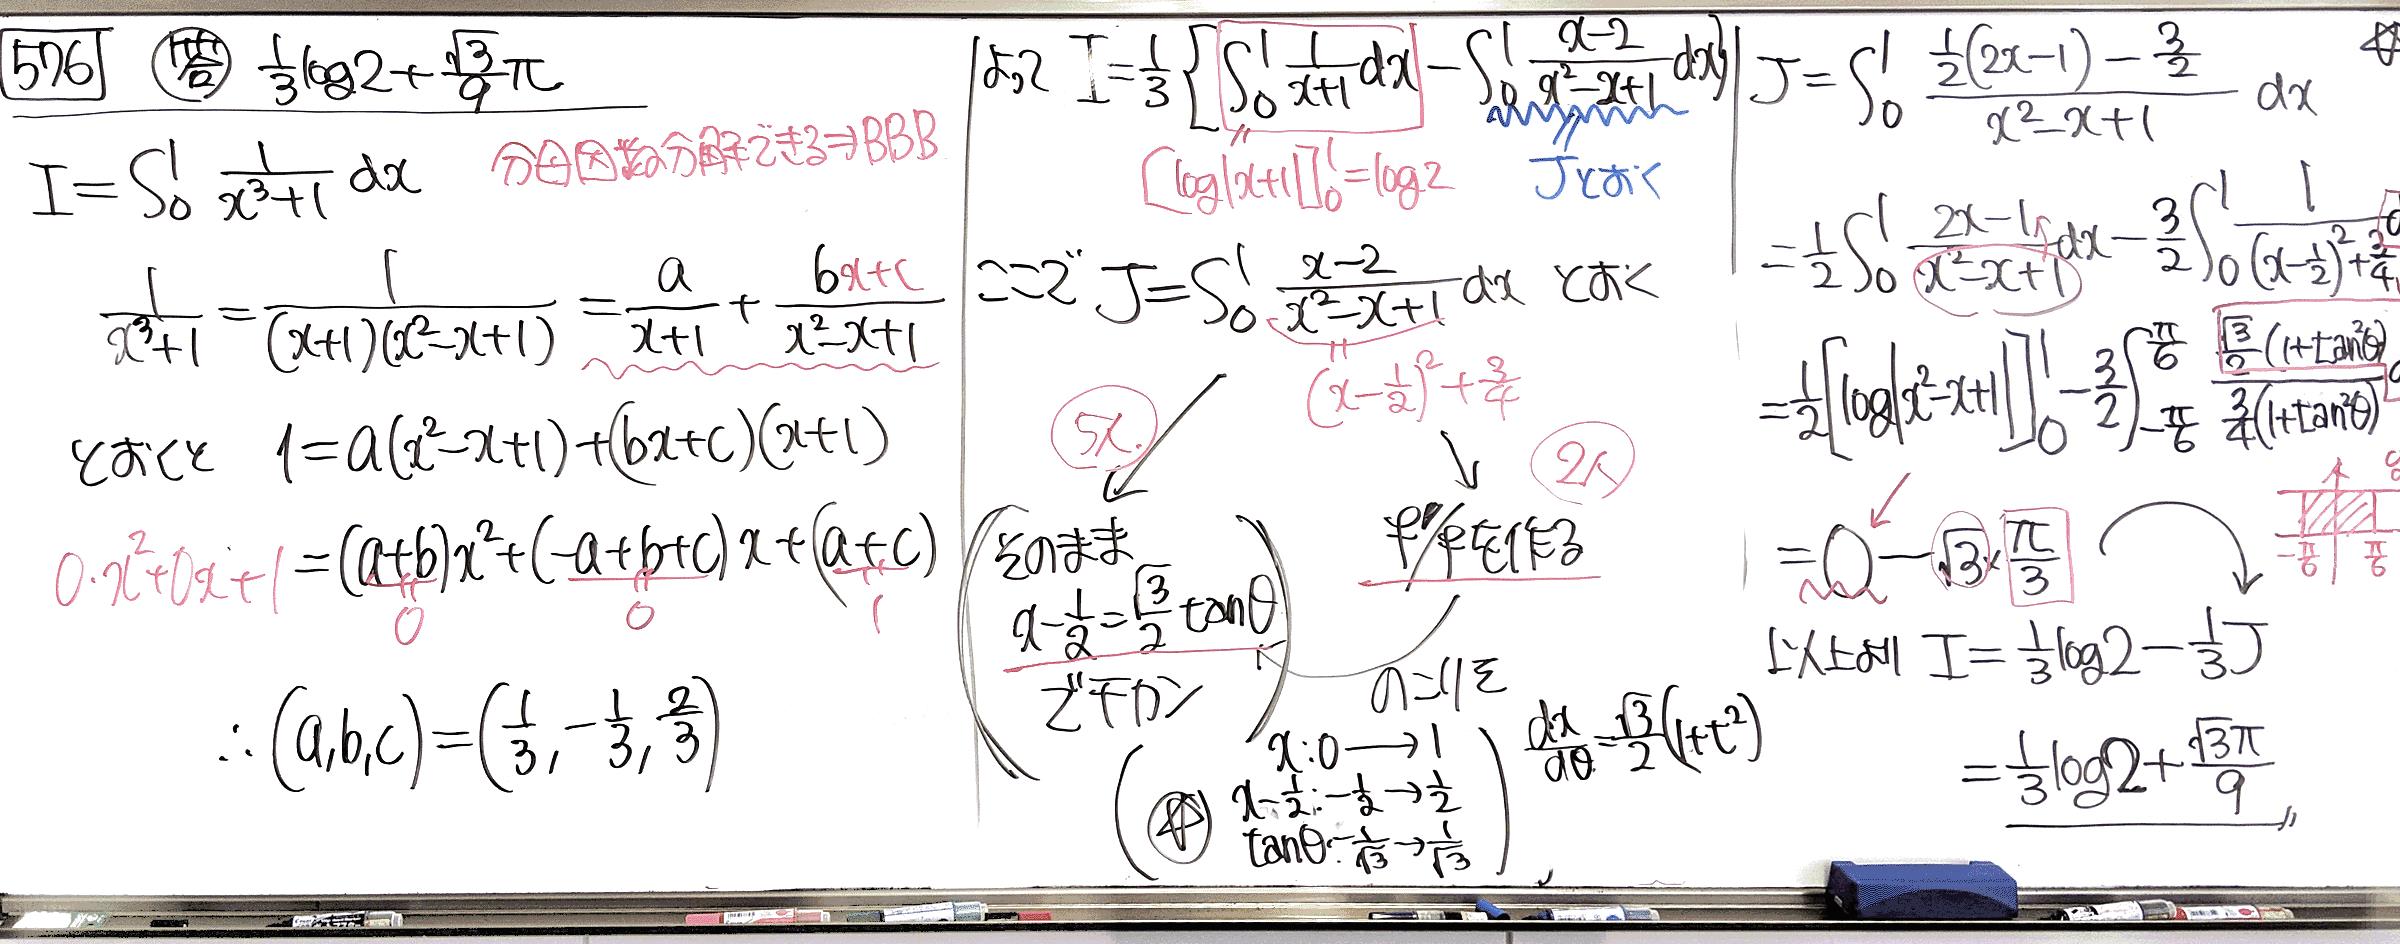 576 答 1/3 log2 + √3/9 π
I = ∫₀¹ 1/(x³+1) dx 分母因数分解できる⇒BBB
1/(x³+1) = 1/((x+1)(x²-x+1)) = a/(x+1) + (bx+c)/(x²-x+1)
とおくと 1 = a(x²-x+1)+(bx+c)(x+1)
0·x²+0x+1 = (a+b)x²+(-a+b+c)x+(a+c)
0 0 1
∴(a,b,c) = (1/3, -1/3, 2/3)
よって I = 1/3 { ∫₀¹ 1/(x+1) dx - ∫₀¹ (x-2)/(x²-x+1) dx }
[log|x+1|]₀¹ = log2 Jとおく
ここで J = ∫₀¹ (x-2)/(x²-x+1) dx とおく
(x-1/2)²+3/4
そのまま
x-1/2 = √3/2 tanθ
でチカン
f'/fを作る
のこりを
x:0→1
x-1/2:-1/2→1/2
tanθ:-1/√3→1/√3
dx/dθ = √3/2 (1+t²)
J = ∫₀¹ (1/2(2x-1) - 3/2)/(x²-x+1) dx
= 1/2 ∫₀¹ (2x-1)/(x²-x+1) dx - 3/2 ∫₀¹ 1/((x-1/2)²+3/4)
= 1/2 [log|x²-x+1|]₀¹ - 3/2 ∫_{-π/6}^{π/6} (√3/2 (1+tan²θ))/(3/4 (1+tan²θ))
= 0 - √3 × π/3
-π/6 π/6
以上より I = 1/3 log2 - 1/3 J
= 1/3 log2 + √3π/9